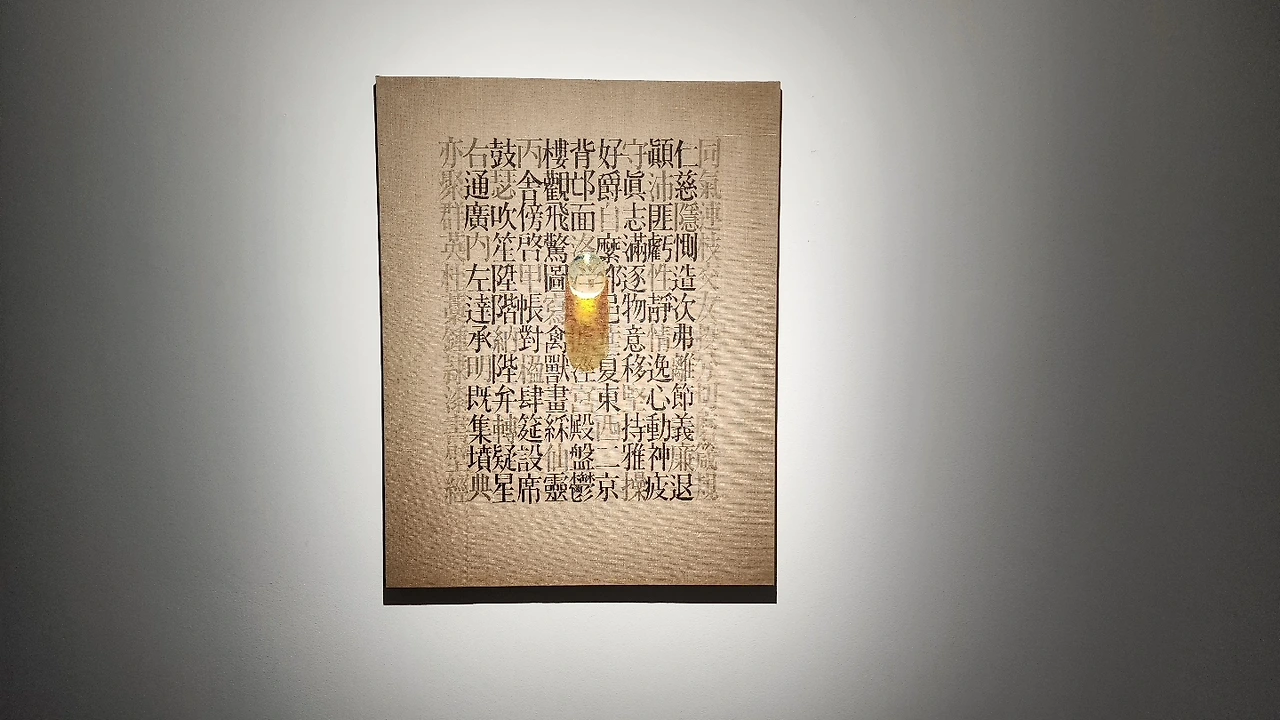 同氣連枝交友投分切磨箴規
仁慈隱惻造次弗離節義廉退
顚沛匪虧性靜情逸心動神疲
守眞志滿逐物意移堅持雅操
好爵自縻都邑華夏東西二京
背邙面洛涇宮殿盤鬱
樓觀飛驚圖寫禽獸畫綵仙靈
丙舍傍啓甲帳對楹肆筵設席
鼓瑟吹笙陞階納陛弁轉疑星
右通廣内左達承明既集墳典
亦聚群英杜藁鍾隸漆書壁經